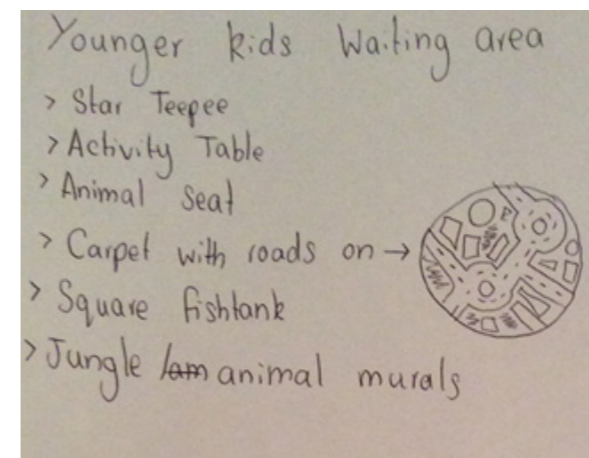 Younger kids Waiting area
> Star Teepee
> Activity Table
> Animal Seat
> Carpet with roads on →
> Square fishtank
> Jungle / animal murals